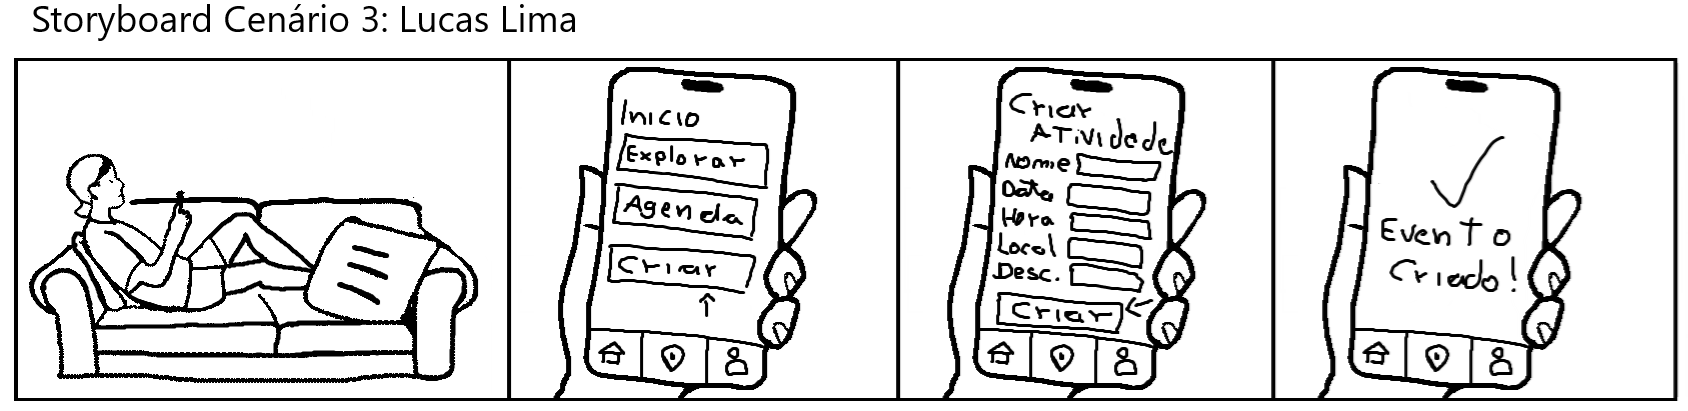 Storyboard Cenário 3: Lucas Lima
Inicio
Explorar
Agenda
Criar
Criar
Atividade
Nome
Data
Hora
Local
Desc.
Criar
Evento
Criado!